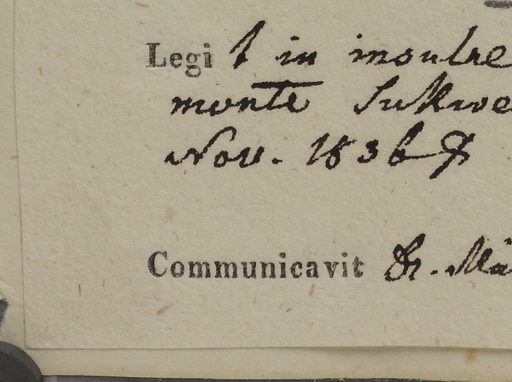 Legit in insulae
monte Sukwe
Nov. 1836
Communicavit Dr. Mä